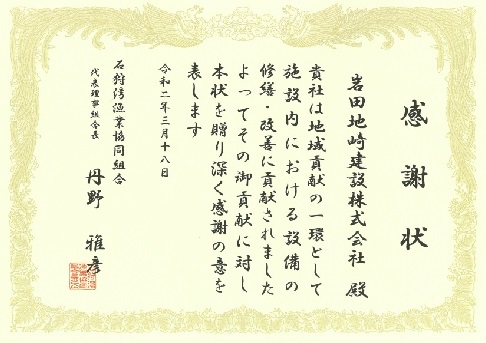 感謝状
岩田地崎建設株式会社 殿
貴社は地域貢献の一環として
施設内における設備の
修繕・改善に貢献されました
よってその御貢献に対し
本状を贈り深く感謝の意を
表します
令和二年三月十八日
石狩湾漁業協同組合
代表理事組合長
丹野 雅彦